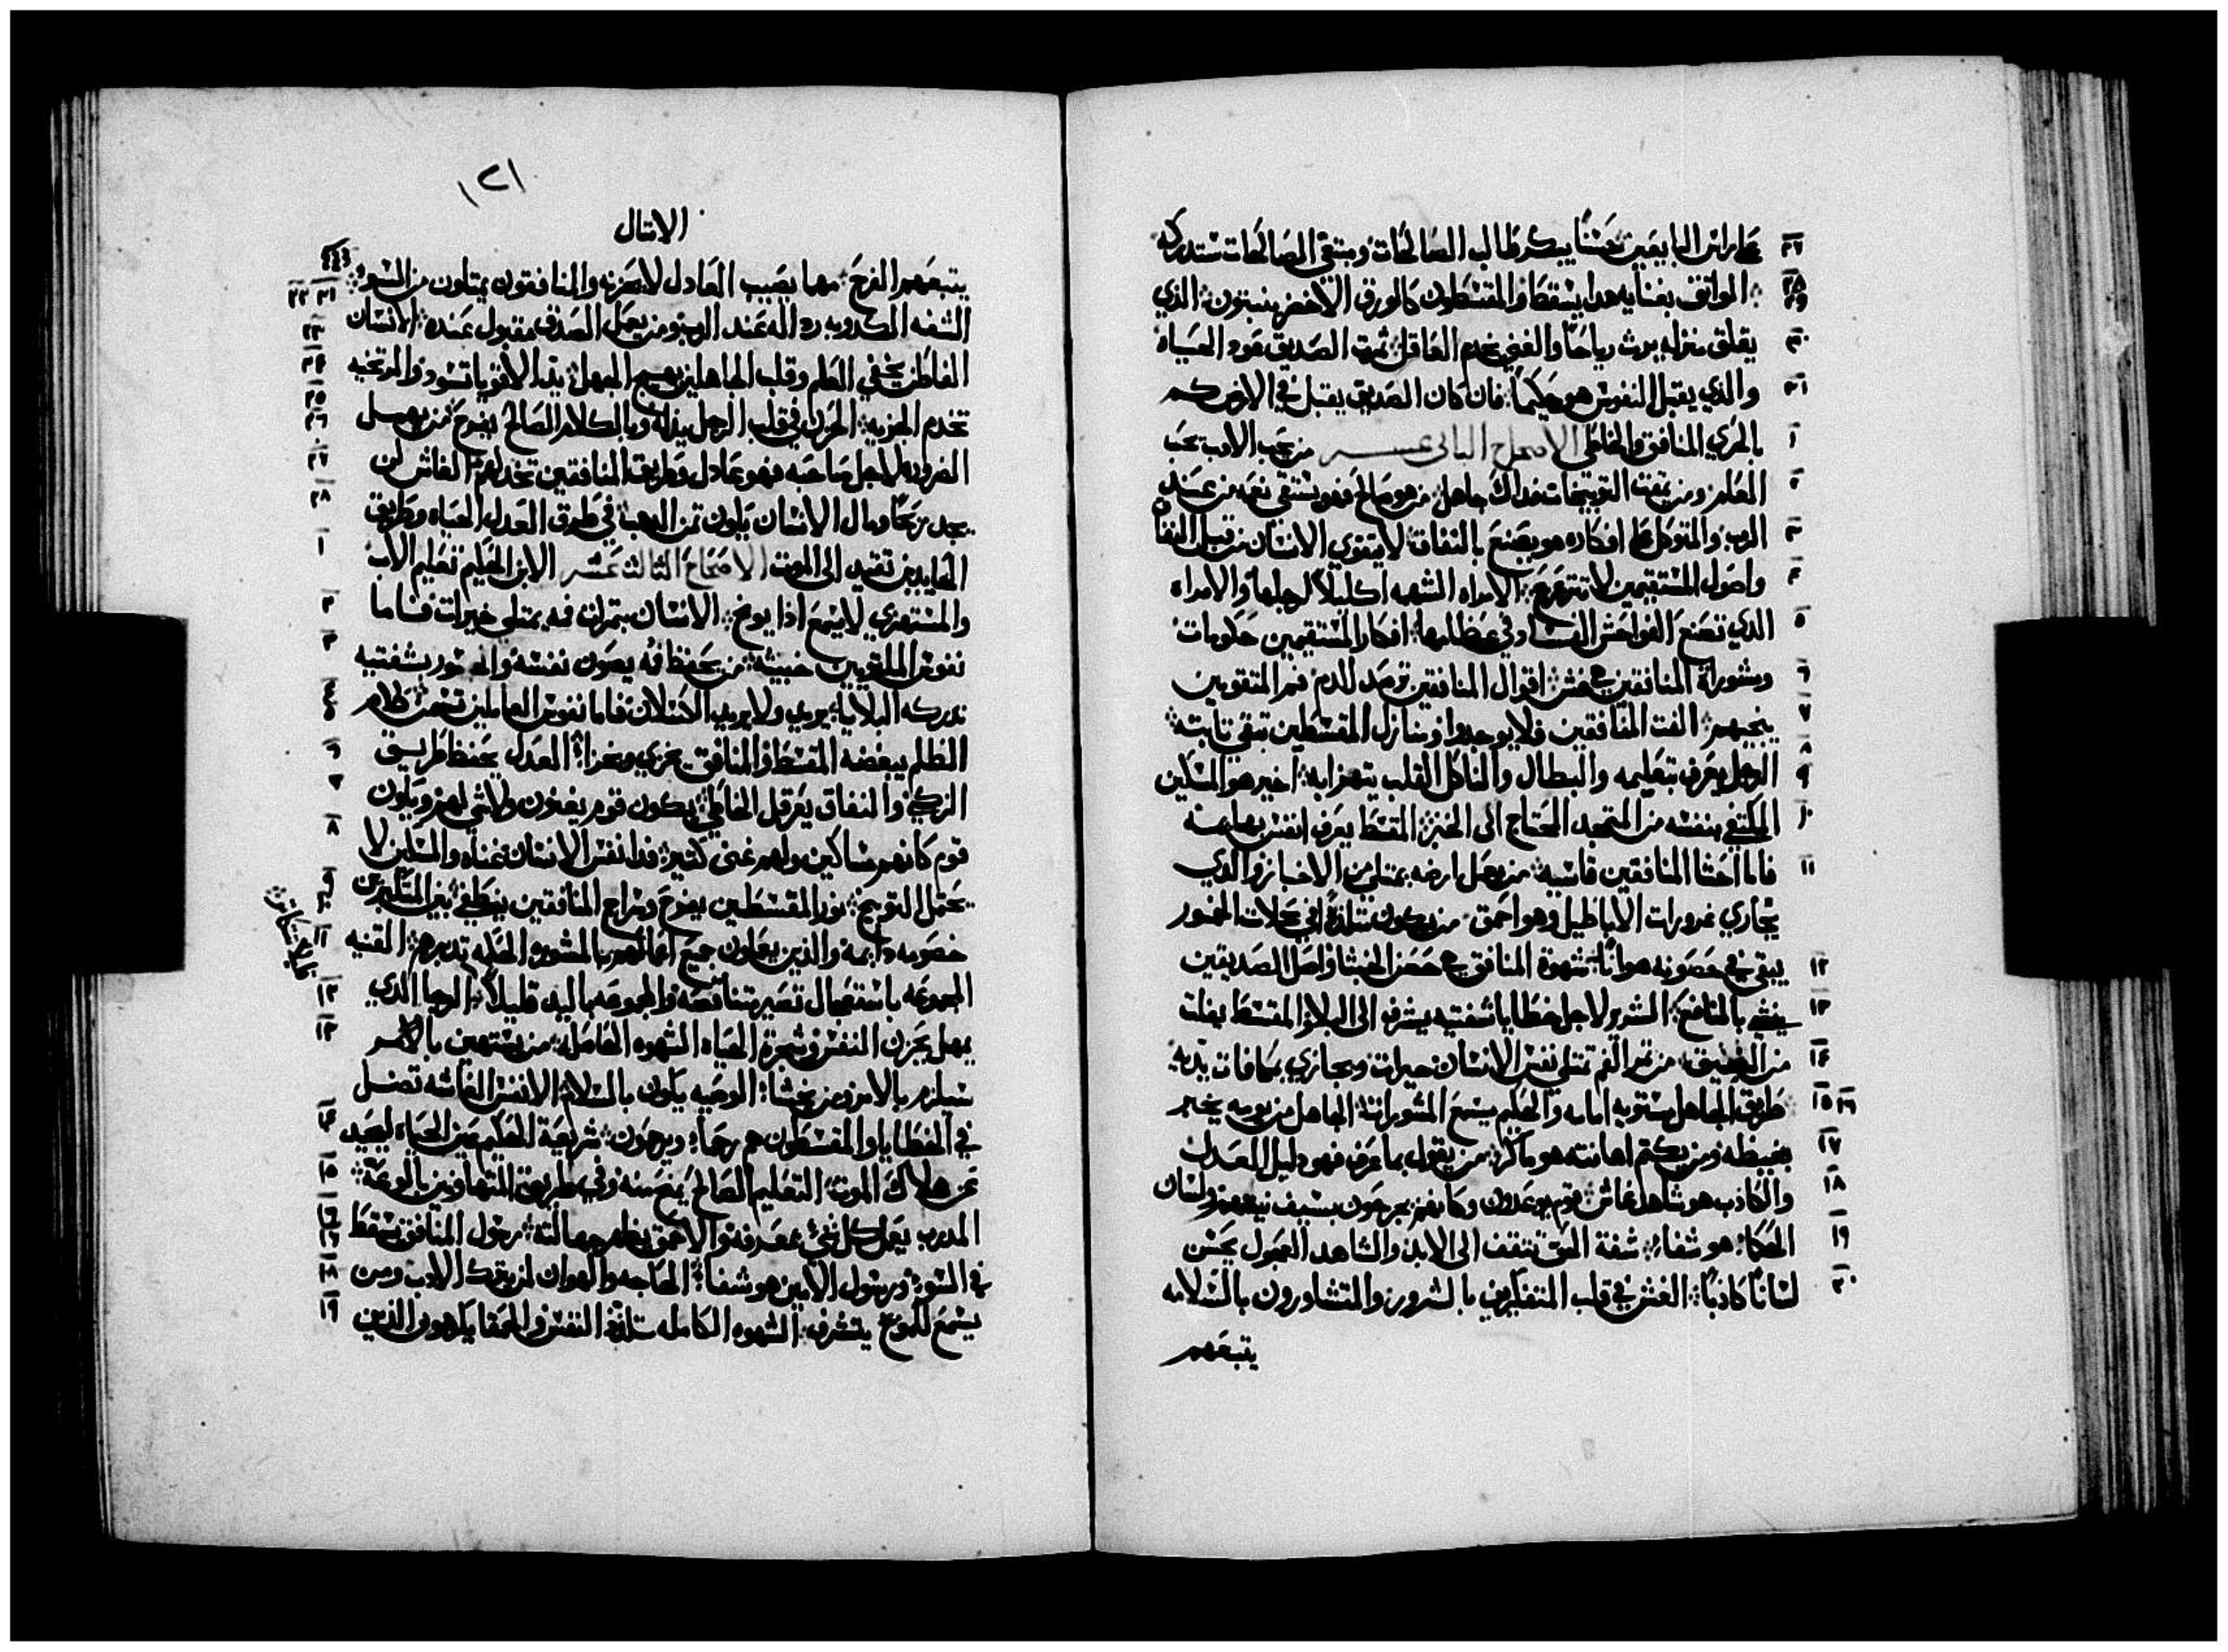 علي راس البايعين حسنًا يبكر طالب الصالحات ومبتغي الصالحات ستدركه ٢٧
الواثق بغنايه هدا يسقط والمقسطون كالورق الاخضر ينبتون الذي ٢٨ ٢٩
يقلق منزله يرث رياحًا والغبي يخدم العاقل ثمرة الصديق عود الحياه ٣٠
والذي يقبل النفوس هو حكيمًا فان كان الصديق يقبل في الارض كم ٣١
بالحري المنافق والخاطي الاصحاح الثاني عشر من يحب الادب يحب ١
العلم ومن يمقت التوبيخات فداك جاهل من هو صالح فهو يستقي نعمه من عند ٢
الرب والمتوكل على افكاره هو يصنع بالنفاق لا يتقوي الانسان من قبل النفاق ٣
واصول المستقيمين لا تتزعزع الامراه الشهمه اكليلاً لرجلها والامراه ٤
الذي تصنع الفواحش الفساد في عظامها افكار المستقيمين حكومات ٥
ومشوراة المنافقين غش اقوال المنافقين ترصد للدم فم المتقومين ٦
ينجيهم الفت المنافقين فلا يوجدوا ومنازل المقسطين تبقي تابته ٧
الرجل يعرف بتعليمه والبطال والناكل القلب يتهزا به اخير هو المسكين ٨ ٩
المكتفي بنفسه من المتمجد المحتاج الى الخبز المقسط يعرف انفس بهايمه ١٠
فاما احشا المنافقين قاسيه من يعمل ارضه يمتلي من الاخباز والذي ١١
يجاري غرورات الاباطيل وهو احمق من يكون متلذذًا في محلات الخمور
يبقي في حصونه هوانًا شهوة المنافق حصن الخبثا واصل الصديقين ١٢
ينشي بالمنافع الشرير لاجل خطايا شفتيه يشرف الى البلا والمقسط يفلت ١٣
من الضيق من تمر الفم تمتلي نفس الانسان خيرات ويجازي بمكافات يديه ١٤
طريق الجاهل مستويه امامه والحكيم يسمع المشورات الجاهل من يومه يخبر ١٥ ١٦
بغيظه ومن يكتم اهانته هو ماكر من يقول بما عرف فهو دليل العدل ١٧
والكاذب هو شاهد غاش قوم يوعدون وكانهم يجرحون بسيف نيتهم ولسان ١٨
الحكما هو شفاء شفة الحق تتقف الى الابد والشاهد العجول يحسن ١٩
لسانًا كاذبًا الغش في قلب المتفكرين بالشرور والمتشاورون بالسلامه ٢٠
يتبعهم
١٢١
الامتال
يتبعهم الفرح مهما يصيب العادل لا يحزنه والمنافقون يمتلون من السوء ٢١ ٢٢
الشفه الكدوبه رداله عند الرب ومن يعمل الصدق مقبول عنده الانسان ٢٣
الفاطن يخفي العلم وقلب الجاهلين يهيج الجهل يد الاقويا تسود والمرتخيه ٢٤
تخدم الجزيه الحزن في قلب الرجل يذله وبالكلام الصالح يفرح من يهمل ٢٥ ٢٦
الضروره لاجل صاحبه فهو عادل وطريق المنافقين تخدلهم الغاش لن ٢٧
يجد ربحًا ومال الانسان يكون تمن الدهب في طرق العدل الحياه وطريق ٢٨
الحايدين تقتد الى الموت الاصحاح الثالث عشر الابن الحكيم تعليم الاب ١
والمستهزي لا يسمع اذا يوبخ الانسان بتمرات فمه يمتلي خيرات فاما ٢
نفوس الملتويين خبيثه من يحفظ فمه يصون نفسه والمتهور بشفتيه ٣
تدركه البلايا يريد ولا يريد الكسلان فاما نفوس العاملين تسمن كلام ٤ ٥
الظلم يبغضه المقسط والمنافق يخزي ويخزا العدل يحفظ طريق ٦
الزكي والنفاق يعرقل الخاطي يكون قوم يغنون ولا شي لهم ويكون ٧
قوم كانهم مساكين ولهم غنى كتير فدا نفس الانسان غناه والمسكين لا ٨
يحتمل التوبيخ نور المقسطين يفرح وسراج المنافقين ينطفي بين المتكبرين ٩ ١٠
خصومه دايمه والذين يعملون جميع اعمالهم بالمشوره الحكمه تدبرهم القنيه ١١
المجموعه باستعجال تصير متناقصه والمجموعه باليد قليلاً الرجا الذي ١٢
يمهل يحزن النفس وشجرة الحياه الشهوه الكامله من يستهين بالامر ١٣
سيلزم بالامر ومن يخشا الوصيه يكون بالسلام الانفس الغاشه تضل
في الخطايا والمقسطون هم رحماء ويرحمون شريعة الحكيم عين الحياه ليحيد ١٤
عن هلاك الموت التعليم الصالح يمنح منه وفي طريق المتهاونين بالوعه ١٥
المدبر يعمل كل شي بمعرفه والاحمق يظهر جهالته رسول المنافق يسقط ١٦ ١٧
في السو ورسول الامين هو شفا الحاجه والهوان لمن يترك الادب ومن ١٨
يسمع للموبخ يتشرف الشهوه الكامله تلذذ النفس والحمقا يكرهون الذين ١٩